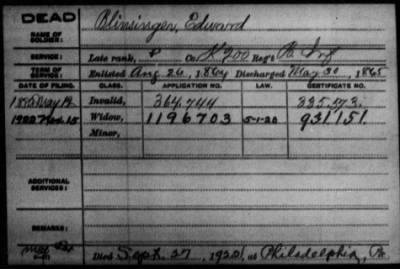 DEAD
NAME OF SOLDIER: Blinsinger, Edward
SERVICE: Late rank, P Co. K 200 Reg't Pa Inf
TERM OF SERVICE: Enlisted Aug. 26, 1864 Discharged May 30, 1865
DATE OF FILING. CLASS. APPLICATION NO. LAW. CERTIFICATE NO.
May 12 Invalid, 364.744 335.573.
Widow, 1196703 5-1-20 931151.
Minor,
ADDITIONAL SERVICES:
REMARKS:
Died Sept. 27, 1920, at Philadelphia, Pa